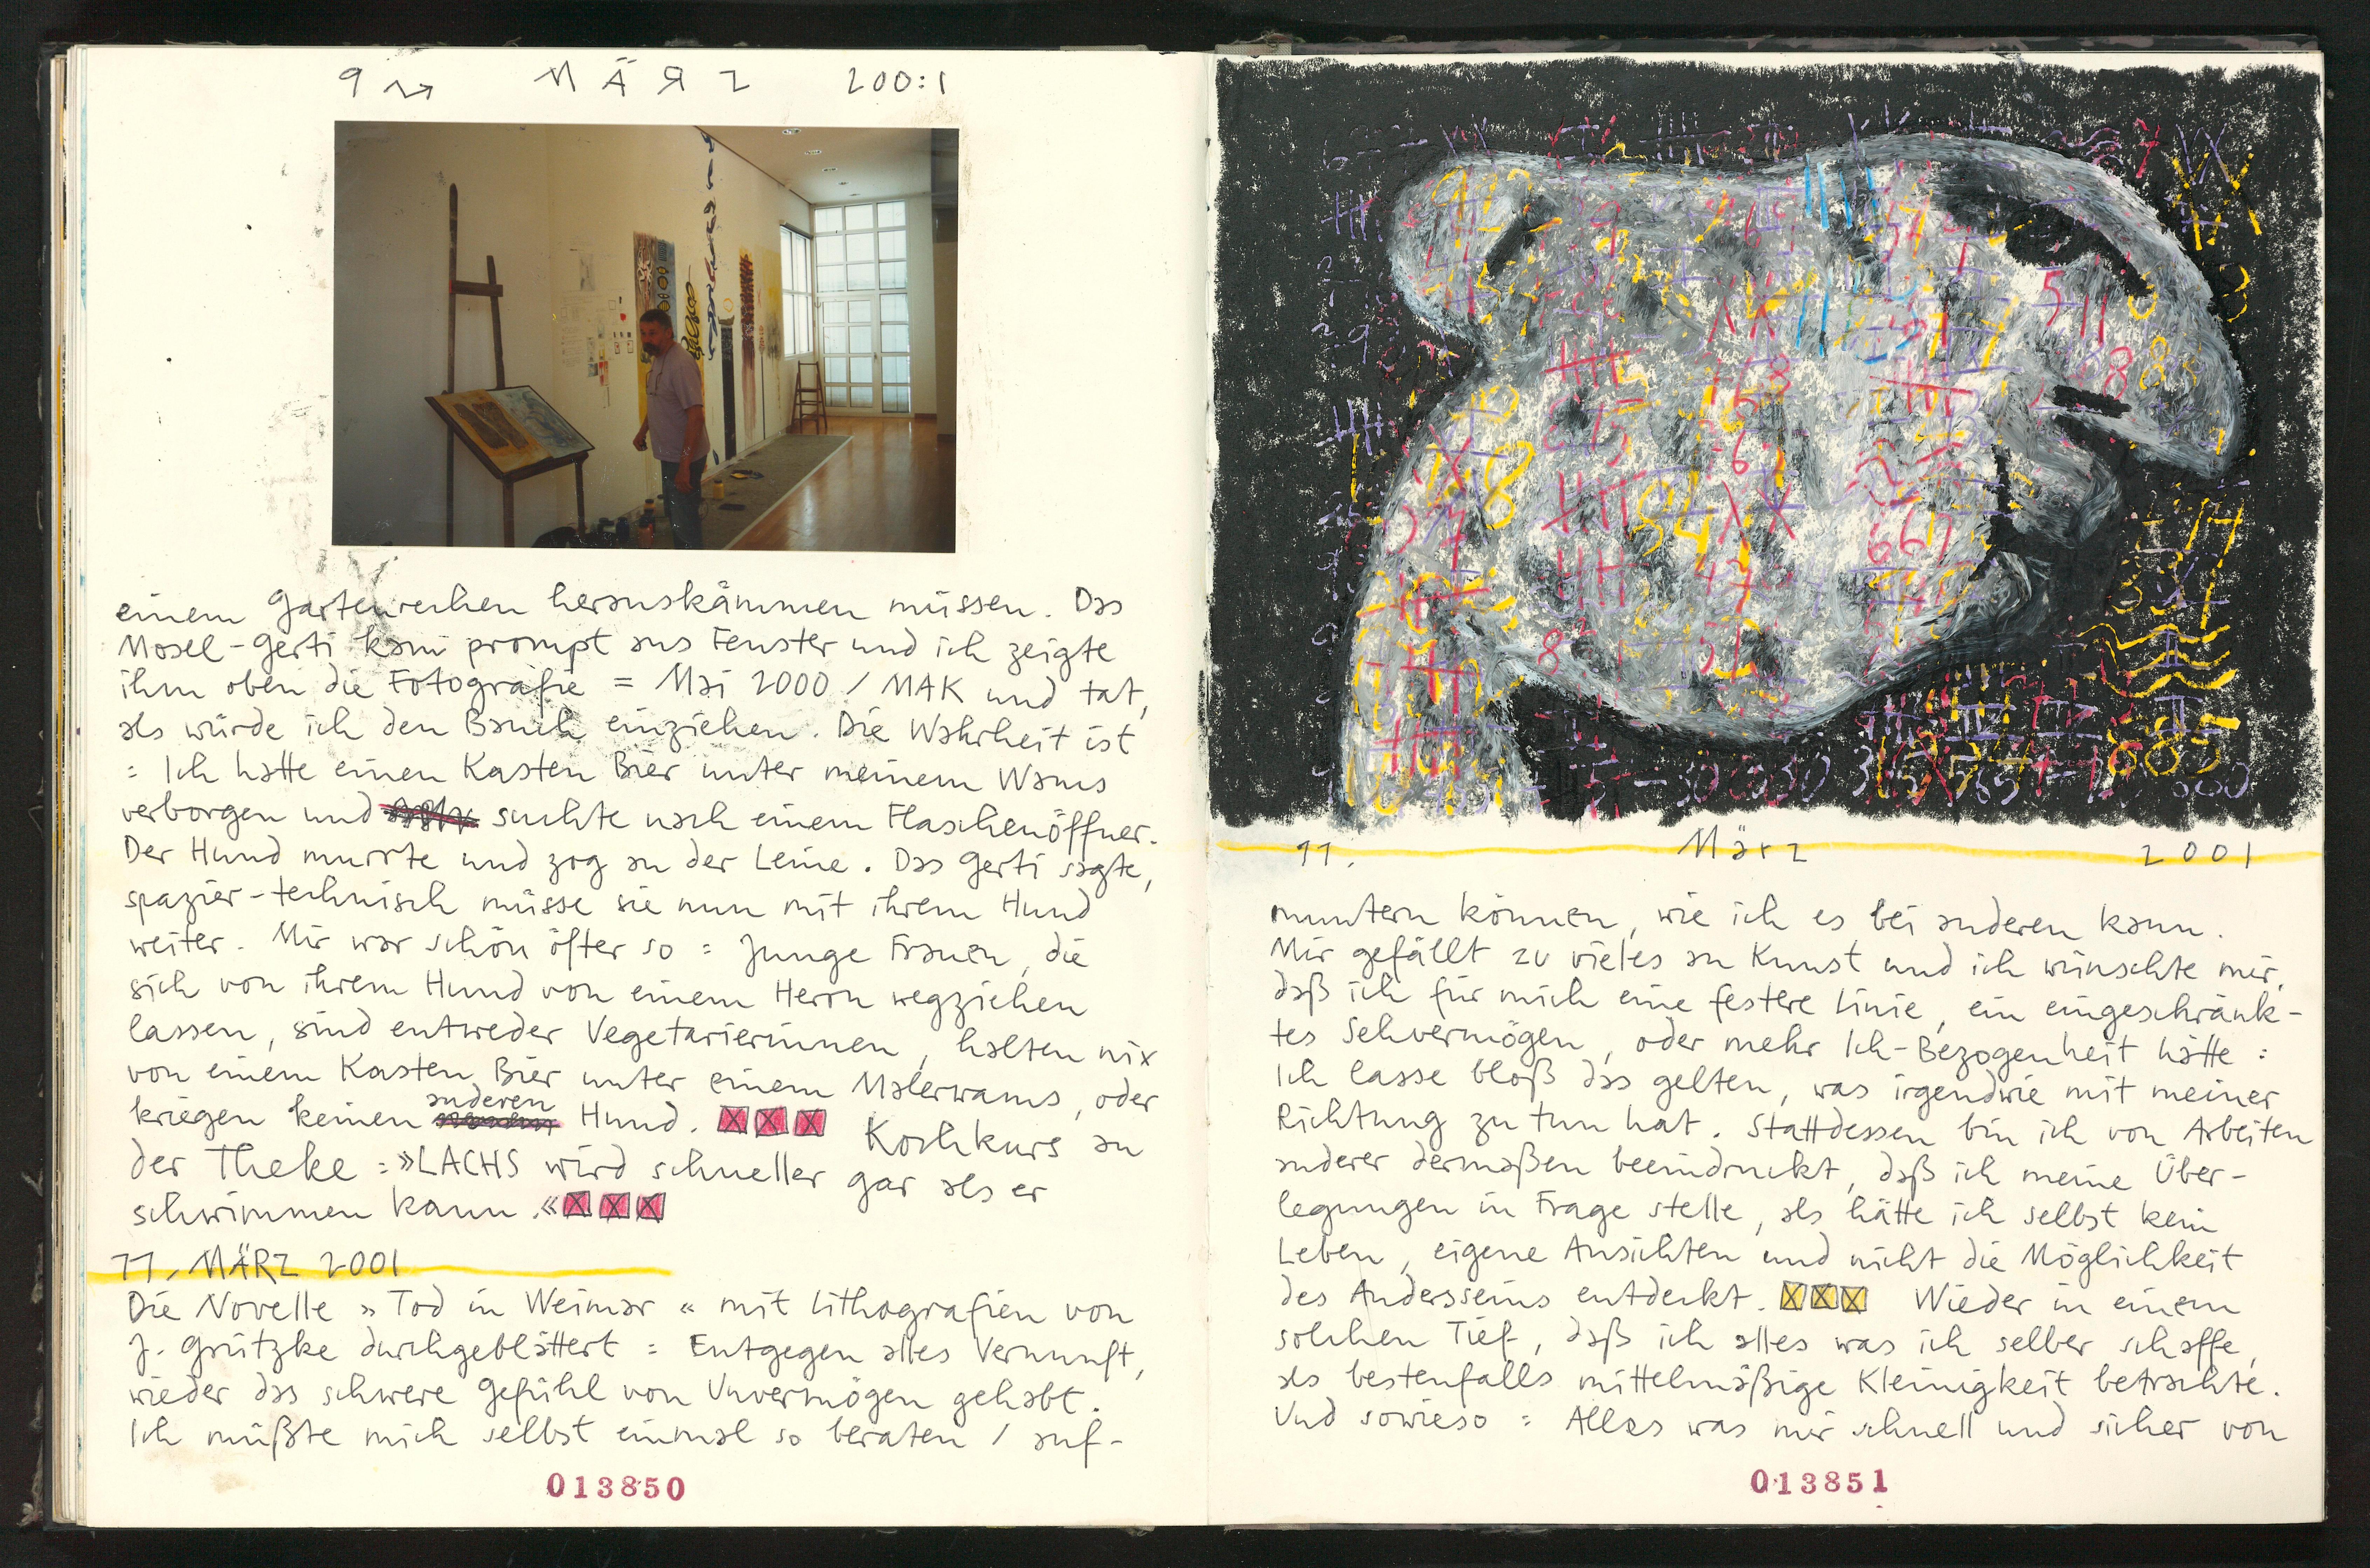 9 MÄRZ 200:1
einem Gartenrechen herauskämmen müssen. Das
Mosel-Gerti kam prompt ans Fenster und ich zeigte
ihm oben die Fotografie = Mai 2000 / MAK und tat,
als würde ich den Bauch einziehen. Die Wahrheit ist
: Ich hatte einen Kasten Bier unter meinem Wams
verborgen und suchte nach einem Flaschenöffner.
Der Hund murrte und zog an der Leine. Das Gerti sagte,
spazier-technisch müsse sie nun mit ihrem Hund
weiter. Mir war schön öfter so = Junge Frauen, die
sich von ihrem Hund von einem Herrn wegziehen
lassen, sind entweder Vegetarierinnen, halten nix
von einem Kasten Bier unter einem Malerwams, oder
kriegen keinen anderen Hund. Kochkurs an
der Theke =»LACHS wird schneller gar als er
schwimmen kann.«
11. MÄRZ 2001
Die Novelle »Tod in Weimar« mit Lithografien von
J. Grützke durchgeblättert = Entgegen alles Vernunft,
wieder das schwere Gefühl von Unvermögen gehabt.
Ich müßte mich selbst einmal so beraten / auf-
013850
11. März 2001
muntern können, wie ich es bei anderen kann.
Mir gefällt zu vieles an Kunst und ich wünschte mir,
daß ich für mich eine festere Linie, ein eingeschränk-
tes Sehvermögen, oder mehr Ich-Bezogenheit hätte :
Ich lasse bloß das gelten, was irgendwie mit meiner
Richtung zu tun hat. Stattdessen bin ich von Arbeiten
anderer dermaßen beeindruckt, daß ich meine Über-
legungen in Frage stelle, als hätte ich selbst kein
Leben, eigene Ansichten und nicht die Möglichkeit
des Andersseins entdeckt. Wieder in einem
solchen Tief, daß ich alles was ich selber schaffe,
als bestenfalls mittelmäßige Kleinigkeit betrachte.
Und sowieso = Alles was mir schnell und sicher von
013851